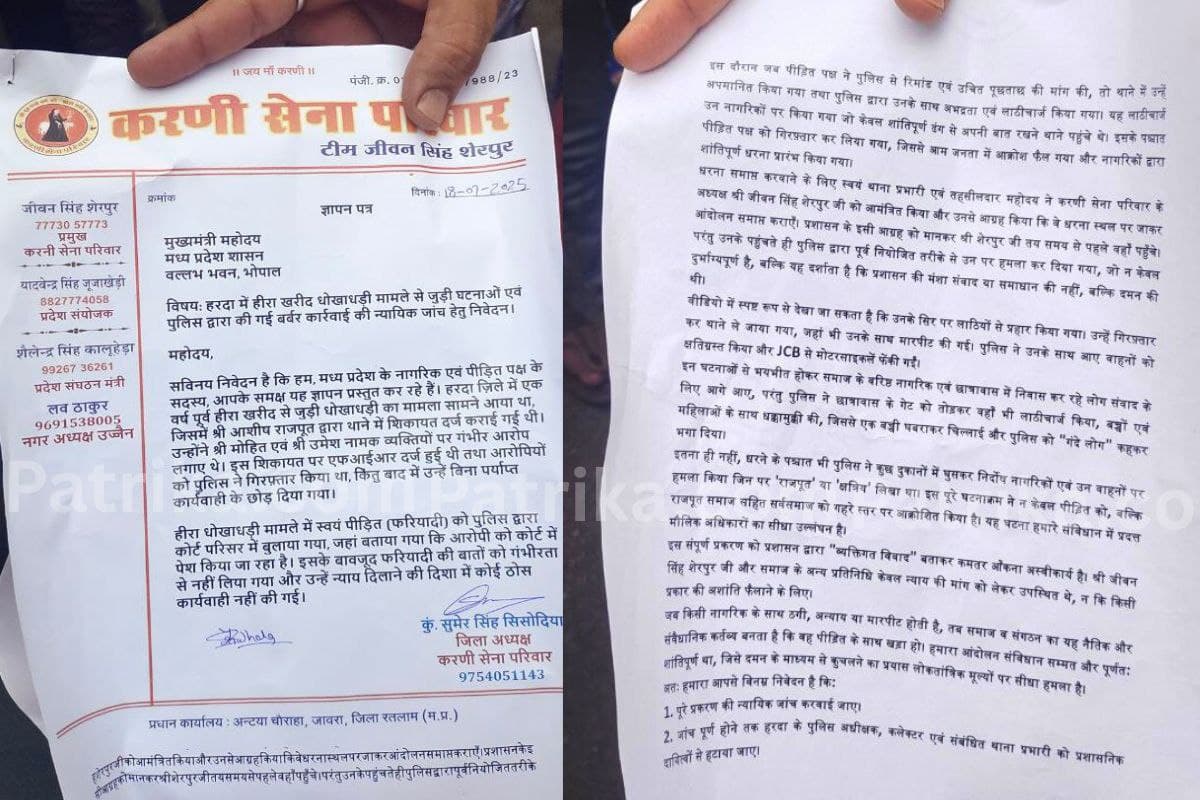 ॥ जय माँ करणी ॥
पंजी. क्र. 988/23
करणी सेना परिवार
टीम जीवन सिंह शेरपुर
क्रमांक
दिनांक : 18-07-2025
ज्ञापन पत्र
जीवन सिंह शेरपुर
77730 57773
प्रमुख
करनी सेना परिवार
यादवेन्द्र सिंह जूजाखेड़ी
8827774058
प्रदेश संयोजक
शैलेन्द्र सिंह कालूहेड़ा
99267 36261
प्रदेश संघठन मंत्री
लव ठाकुर
9691538005
नगर अध्यक्ष उज्जैन
मुख्यमंत्री महोदय
मध्य प्रदेश शासन
वल्लभ भवन, भोपाल
विषय: हरदा में हीरा खरीद धोखाधड़ी मामले से जुड़ी घटनाओं एवं
पुलिस द्वारा की गई बर्बर कार्रवाई की न्यायिक जांच हेतु निवेदन।
महोदय,
सविनय निवेदन है कि हम, मध्य प्रदेश के नागरिक एवं पीड़ित पक्ष के
सदस्य, आपके समक्ष यह ज्ञापन प्रस्तुत कर रहे हैं। हरदा ज़िले में एक
वर्ष पूर्व हीरा खरीद से जुड़ी धोखाधड़ी का मामला सामने आया था,
जिसमें श्री आशीष राजपूत द्वारा थाने में शिकायत दर्ज कराई गई थी।
उन्होंने श्री मोहित एवं श्री उमेश नामक व्यक्तियों पर गंभीर आरोप
लगाए थे। इस शिकायत पर एफआईआर दर्ज हुई थी तथा आरोपियों
को पुलिस ने गिरफ़्तार किया था, किंतु बाद में उन्हें बिना पर्याप्त
कार्यवाही के छोड़ दिया गया।
हीरा धोखाधड़ी मामले में स्वयं पीड़ित (फरियादी) को पुलिस द्वारा
कोर्ट परिसर में बुलाया गया, जहां बताया गया कि आरोपी को कोर्ट में
पेश किया जा रहा है। इसके बावजूद फरियादी की बातों को गंभीरता
से नहीं लिया गया और उन्हें न्याय दिलाने की दिशा में कोई ठोस
कार्यवाही नहीं की गई।
कुं. सुमेर सिंह सिसोदिया
जिला अध्यक्ष
करणी सेना परिवार
9754051143
प्रधान कार्यालय : अन्टया चौराहा, जावरा, जिला रतलाम (म.प्र.)
इस दौरान जब पीड़ित पक्ष ने पुलिस से रिमांड एवं उचित पूछताछ की मांग की, तो थाने में उन्हें
अपमानित किया गया तथा पुलिस द्वारा उनके साथ अभद्रता एवं लाठीचार्ज किया गया। यह लाठीचार्ज
उन नागरिकों पर किया गया जो केवल शांतिपूर्ण ढंग से अपनी बात रखने थाने पहुंचे थे। इसके पश्चात
पीड़ित पक्ष को गिरफ़्तार कर लिया गया, जिससे आम जनता में आक्रोश फैल गया और नागरिकों द्वारा
शांतिपूर्ण धरना प्रारंभ किया गया।
धरना समाप्त करवाने के लिए स्वयं थाना प्रभारी एवं तहसीलदार महोदय ने करणी सेना परिवार के
अध्यक्ष श्री जीवन सिंह शेरपुर जी को आमंत्रित किया और उनसे आग्रह किया कि वे धरना स्थल पर जाकर
आंदोलन समाप्त कराएँ। प्रशासन के इसी आग्रह को मानकर श्री शेरपुर जी तय समय से पहले वहाँ पहुँचे।
परंतु उनके पहुंचते ही पुलिस द्वारा पूर्व नियोजित तरीके से उन पर हमला कर दिया गया, जो न केवल
दुर्भाग्यपूर्ण है, बल्कि यह दर्शाता है कि प्रशासन की मंशा संवाद या समाधान की नहीं, बल्कि दमन की
थी।
वीडियो में स्पष्ट रूप से देखा जा सकता है कि उनके सिर पर लाठियों से प्रहार किया गया। उन्हें गिरफ्तार
कर थाने ले जाया गया, जहां भी उनके साथ मारपीट की गई। पुलिस ने उनके साथ आए वाहनों को
क्षतिग्रस्त किया और JCB से मोटरसाइकलें फेंकी गईं।
इन घटनाओं से भयभीत होकर समाज के वरिष्ठ नागरिक एवं छात्रावास में निवास कर रहे लोग संवाद के
लिए आगे आए, परंतु पुलिस ने छात्रावास के गेट को तोड़कर वहाँ भी लाठीचार्ज किया, बच्चों एवं
महिलाओं के साथ धक्कामुक्की की, जिससे एक बच्ची घबराकर चिल्लाई और पुलिस को "गंदे लोग" कहकर
भगा दिया।
इतना ही नहीं, धरने के पश्चात भी पुलिस ने कुछ दुकानों में घुसकर निर्दोष नागरिकों एवं उन वाहनों पर
हमला किया जिन पर 'राजपूत' या 'क्षत्रिय' लिखा था। इस पूरे घटनाक्रम ने न केवल पीड़ित को, बल्कि
राजपूत समाज सहित सर्वसमाज को गहरे स्तर पर आक्रोशित किया है। यह घटना हमारे संविधान में प्रदत्त
मौलिक अधिकारों का सीधा उल्लंघन है।
इस संपूर्ण प्रकरण को प्रशासन द्वारा "व्यक्तिगत विवाद" बताकर कमतर आँकना अस्वीकार्य है। श्री जीवन
सिंह शेरपुर जी और समाज के अन्य प्रतिनिधि केवल न्याय की मांग को लेकर उपस्थित थे, न कि किसी
प्रकार की अशांति फैलाने के लिए।
जब किसी नागरिक के साथ ठगी, अन्याय या मारपीट होती है, तब समाज व संगठन का यह नैतिक और
संवैधानिक कर्तव्य बनता है कि वह पीड़ित के साथ खड़ा हो। हमारा आंदोलन संविधान सम्मत और पूर्णतः
शांतिपूर्ण था, जिसे दमन के माध्यम से कुचलने का प्रयास लोकतांत्रिक मूल्यों पर सीधा हमला है।
अतः हमारा आपसे विनम्र निवेदन है कि:
1. पूरे प्रकरण की न्यायिक जांच करवाई जाए।
2. जांच पूर्ण होने तक हरदा के पुलिस अधीक्षक, कलेक्टर एवं संबंधित थाना प्रभारी को प्रशासनिक
दायित्वों से हटाया जाए।